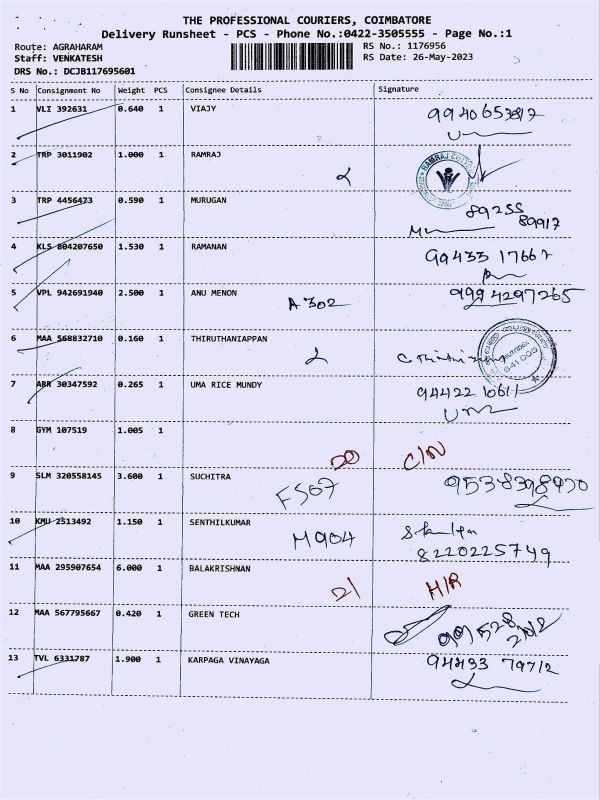 THE PROFESSIONAL COURIERS, COIMBATORE
Delivery Runsheet - PCS - Phone No.:0422-3505555 - Page No.:1
Route: AGRAHARAM
RS No.: 1176956
Staff: VENKATESH
RS Date: 26-May-2023
DRS No.: DCJB117695601
S No Consignment No Weight PCS Consignee Details Signature
1 VLI 392631 0.640 1 VIAJY
2 TRP 3011902 1.000 1 RAMRAJ
3 TRP 4456473 0.590 1 MURUGAN 89255
89917
4 KLS 804207650 1.530 1 RAMANAN 94433 17667
5 VPL 942691940 2.500 1 ANU MENON A 302 9994297265
6 MAA 568832710 0.160 1 THIRUTHANIAPPAN
7 ARR 30347592 0.265 1 UMA RICE MUNDY 94422 10611
8 GYM 107519 1.005 1 C/N
9 SLM 320558145 3.600 1 SUCHITRA F507
10 KMU 2513492 1.150 1 SENTHILKUMAR M904
8220225749
11 MAA 295907654 6.000 1 BALAKRISHNAN 21 H/R
12 MAA 567795667 0.420 1 GREEN TECH
13 TVL 6331787 1.900 1 KARPAGA VINAYAGA 94433 79712